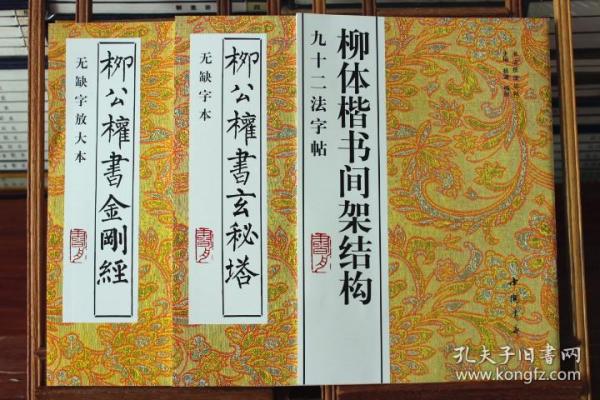 柳公權書金剛經
无缺字放大本
柳公權書玄秘塔
无缺字本
柳体楷书间架结构
九十二法字帖
中国书店
孔夫子旧书网
www.kongfz.com